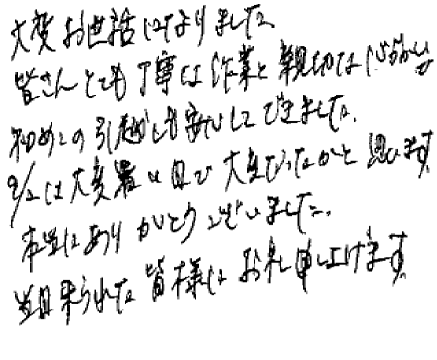 大変お世話になりました
皆さんとても丁寧な作業と親切な心づかい
初めての引越しも安心してできました。
9/2は大変暑い日で大変だったかと思います。
本当にありがとうございました。
当日来られた皆様にお礼申し上げます